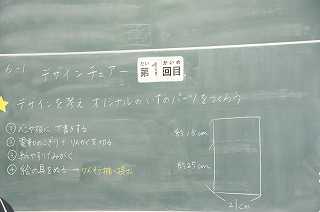 6-1 デザインチェアー
第1回目
だい かいめ
デザインを考え オリジナルのいすのパーツをつくろう
① ベニヤ板に下書きする
② 電動のこぎりでりんかくを切る
③ 紙やすりでみがく
④ 絵の具をぬる
約15cm
約25cm
21cm